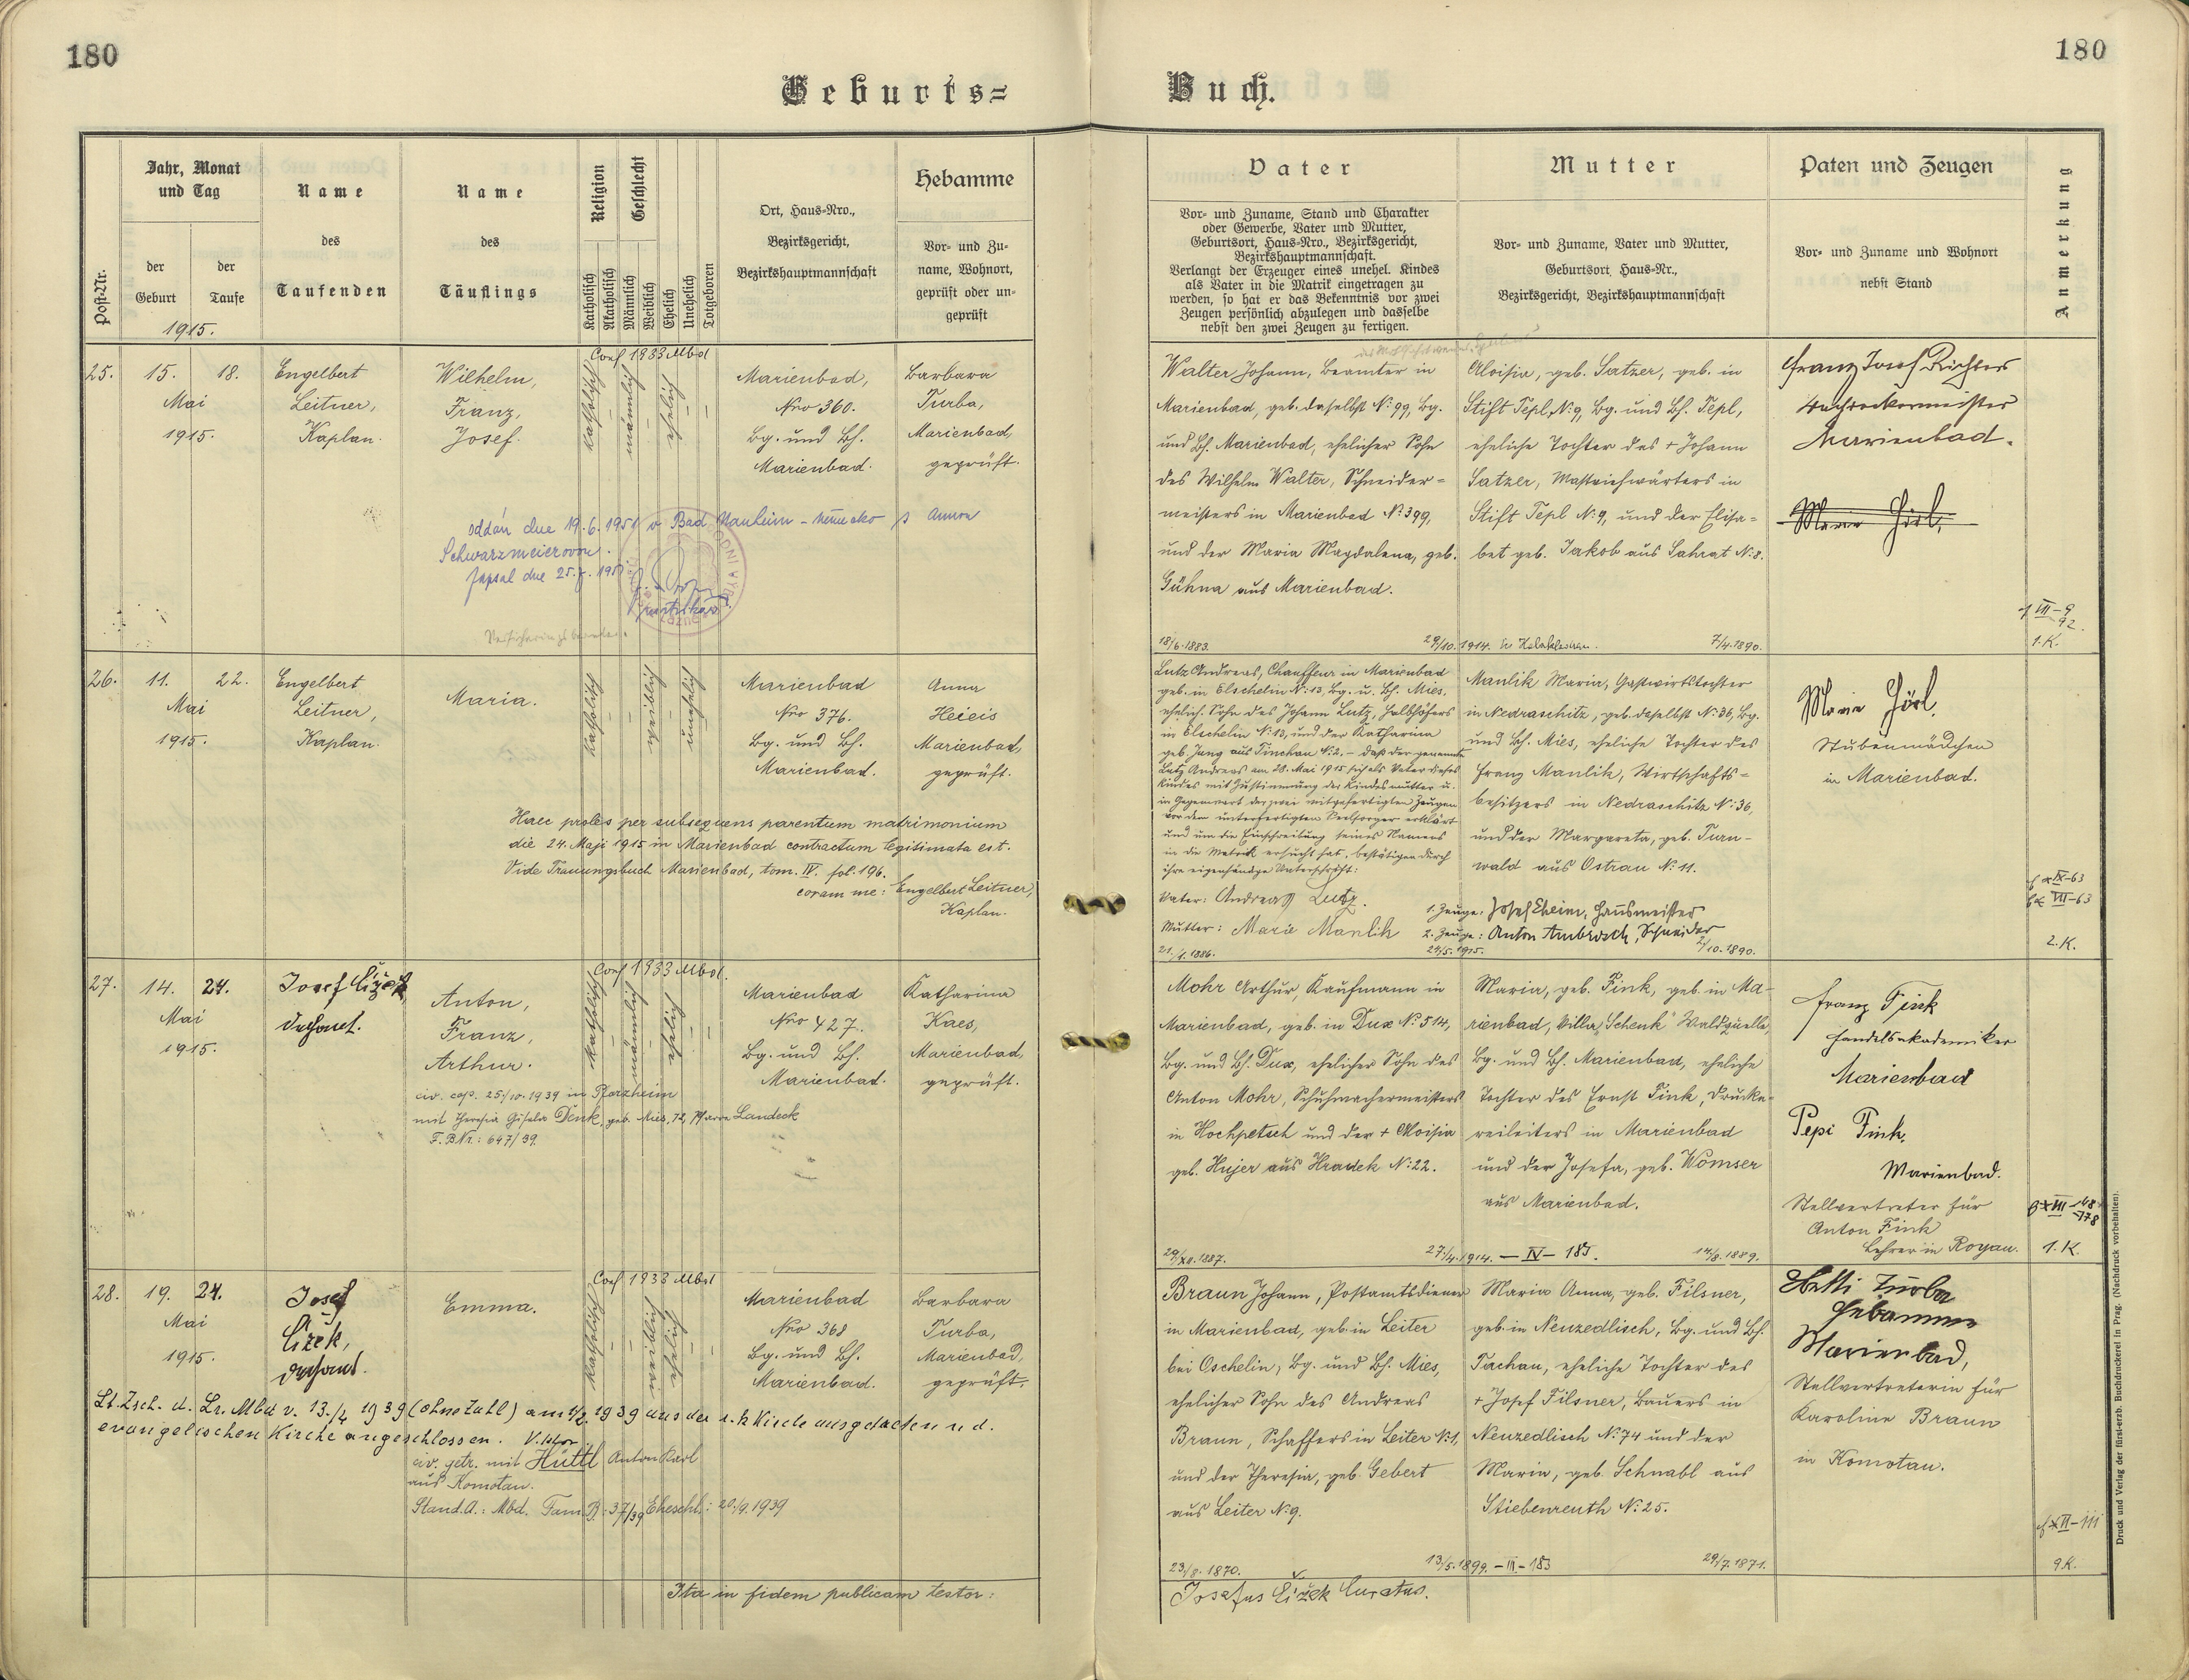 180
180
Geburts=
Buch.
Post-Nr.
Jahr, Monat
und Tag
der
Geburt
der
Taufe
1915.
Name
des
Taufenden
Name
des
Täuflings
Religion
Katholisch
Akatholisch
Geschlecht
Männlich
Weiblich
Ehelich
Unehelich
Totgeboren
Ort, Haus-Nro.,
Bezirksgericht,
Bezirkshauptmannschaft
Hebamme
Vor- und Zu-
name, Wohnort,
geprüft oder un-
geprüft
Vater
Vor- und Zuname, Stand und Charakter
oder Gewerbe, Vater und Mutter,
Geburtsort, Haus-Nro., Bezirksgericht,
Bezirkshauptmannschaft.
Verlangt der Erzeuger eines unehel. Kindes
als Vater in die Matrik eingetragen zu
werden, so hat er das Bekenntnis vor zwei
Zeugen persönlich abzulegen und dasselbe
nebst den zwei Zeugen zu fertigen.
Mutter
Vor- und Zuname, Vater und Mutter,
Geburtsort, Haus-Nr.,
Bezirksgericht, Bezirkshauptmannschaft
Paten und Zeugen
Vor- und Zuname und Wohnort
nebst Stand
Anmerkung
25.
15.
18.
Mai
1915.
Engelbert
Leitner,
Kaplan.
Wilhelm,
Franz,
Josef.
Conf 1933 Mbd
katholisch
männlich
ehelich
Marienbad,
Nro 360.
Bg. und Bh.
Marienbad.
Barbara
Turba,
Marienbad,
geprüft.
oddán dne 19.6.1951 v Bad Nauheim - německo s Annou
Schwarzmeierovou.
Zapsal dne 25.7.1951
matrikář
Walter Johann, Beamter in
Marienbad, geb. daselbst N: 99, Bg.
und Bh. Marienbad, ehelicher Sohn
des Wilhelm Walter, Schneider=
meisters in Marienbad N: 399,
und der Maria Magdalena, geb.
Gühna aus Marienbad.
18/6.1883.
29/10.1914.
Aloisia, geb. Satzer, geb. in
Stift Tepl, N: 9, Bg. und Bh. Tepl,
eheliche Tochter des + Johann
Satzer, Mastviehwärters in
Stift Tepl N: 9, und der Elisa=
bet geb. Jakob aus Sahrat N: 8.
7/4.1890.
Franz Josef Richter
Marienbad.
Marie Hörl,
1. K.
26.
11.
22.
Mai
1915.
Engelbert
Leitner,
Kaplan.
Maria.
katholisch
weiblich
unehelich
Marienbad
Nro 376.
Bg. und Bh.
Marienbad.
Anna
Heieis
Marienbad,
geprüft.
Haec proles per subsequens parentum matrimonium
die 24. Maji 1915 in Marienbad contractum legitimata est.
Vide Trauungsbuch Marienbad, tom. IV. fol. 196.
coram me: Engelbert Leitner,
Kaplan.
Lutz Andreas, Chauffeur in Marienbad
geb. in Elschelin N: 13, Bg. u. Bh. Mies,
ehelich. Sohn des Johann Lutz, Halbhöfers
in Elschelin N: 13, und der Katharina
geb. Jung aus Tinchau N: 2. – daß der genannte
Lutz Andreas am 28. Mai 1915 sich als Vater dieses
Kindes mit Zustimmung der Kindesmutter u.
in Gegenwart der zwei mitgefertigten Zeugen
vor dem unterfertigten Seelsorger erklärt
und um die Einschreibung seines Namens
in die Matrik ersucht hat, bestätigen durch
ihre eigenhändige Unterschrift:
Vater: Andreas Lutz.
Mutter: Marie Manlik
1. Zeuge: Josef Eheim, Hausmeister
2. Zeuge: Anton Ambrosch, Schneider
21./1.1886.
24/5.1915.
2/10.1890.
Manlik Maria, Gastwirtstochter
in Nedraschitz, geb. daselbst N: 36, Bg.
und Bh. Mies, eheliche Tochter des
Franz Manlik, Wirtschafts=
besitzers in Nedraschitz N: 36,
und der Margareta, geb. Turn-
wald aus Ostrau N: 11.
Marie Hörl,
Stubenmädchen
in Marienbad.
2. K.
27.
14.
24.
Mai
1915.
Josef Čižek
Dechant.
Anton,
Franz,
Arthur.
Conf 1933 Mbd.
katholisch
männlich
ehelich
Marienbad
Nro 427.
Bg. und Bh.
Marienbad.
Katharina
Kaes,
Marienbad,
geprüft.
civ. cop. 25./10.1939 in Pforzheim
mit Theresia Gisela Denk, geb. Mies, 72, Pfarre Landeck
F.B.Nr.: 647/39
Mohr Arthur, Kaufmann in
Marienbad, geb. in Dux N: 514,
Bg. und Bh. Dux, ehelicher Sohn des
Anton Mohr, Schuhmachermeisters
in Hochpetsch und der + Aloisia
geb. Hujer aus Hradek N: 22.
29/XII.1887.
27./4.1914. – IV – 185.
14/8.1889.
Maria, geb. Fink, geb. in Ma-
rienbad, Villa „Schenk" Waldquelle,
Bg. und Bh. Marienbad, eheliche
Tochter des Ernst Fink, Drucke-
reileiters in Marienbad
und der Josefa, geb. Womser
aus Marienbad.
Franz Fink
Handelsakademiker
Marienbad
Pepi Fink,
Marienbad.
Stellvertreter für
Anton Fink
Lehrer in Royau.
1. K.
28.
19.
24.
Mai
1915.
Josef
Čižek,
Dechant.
Emma.
Conf 1938 Mbd
katholisch
weiblich
ehelich
Marienbad
Nro 368
Bg. und Bh.
Marienbad.
Barbara
Turba,
Marienbad,
geprüft.
Lt. Zsch. d. Lr. Mbd v. 13./4 1939 (ohne Zahl) am 1/2 1939 aus der r.k Kirche ausgetreten u. d.
evangelischen Kirche angeschlossen.
civ. getr. mit Hüttl Anton Karl
aus Komotau.
Stand.A.: Mbd. Fam.B.: 37/39 Eheschl.: 20./9.1939
Braun Johann, Postamtsdiener
in Marienbad, geb. in Leiter
bei Oschelin, Bg. und Bh. Mies,
ehelicher Sohn des Andreas
Braun, Schaffers in Leiter N: 1,
und der Theresia, geb. Gebert
aus Leiter N: 9.
23/8.1870.
13/5.1899. – III – 183
29/7.1871.
Maria Anna, geb. Filsner,
geb. in Neuzedlisch, Bg. und Bh.
Tachau, eheliche Tochter des
+ Josef Filsner, Bauers in
Neuzedlisch N: 74 und der
Maria, geb. Schnabl aus
Stiebenreuth N: 25.
Betti Turba
Hebamme
Marienbad,
Stellvertreterin für
Karoline Braun
in Komotau.
9. K.
Ita in fidem publicam testor:
Josefus Čižek Curatus.
Druck und Verlag der fürst-erzb. Buchdruckerei in Prag. (Nachdruck vorbehalten).